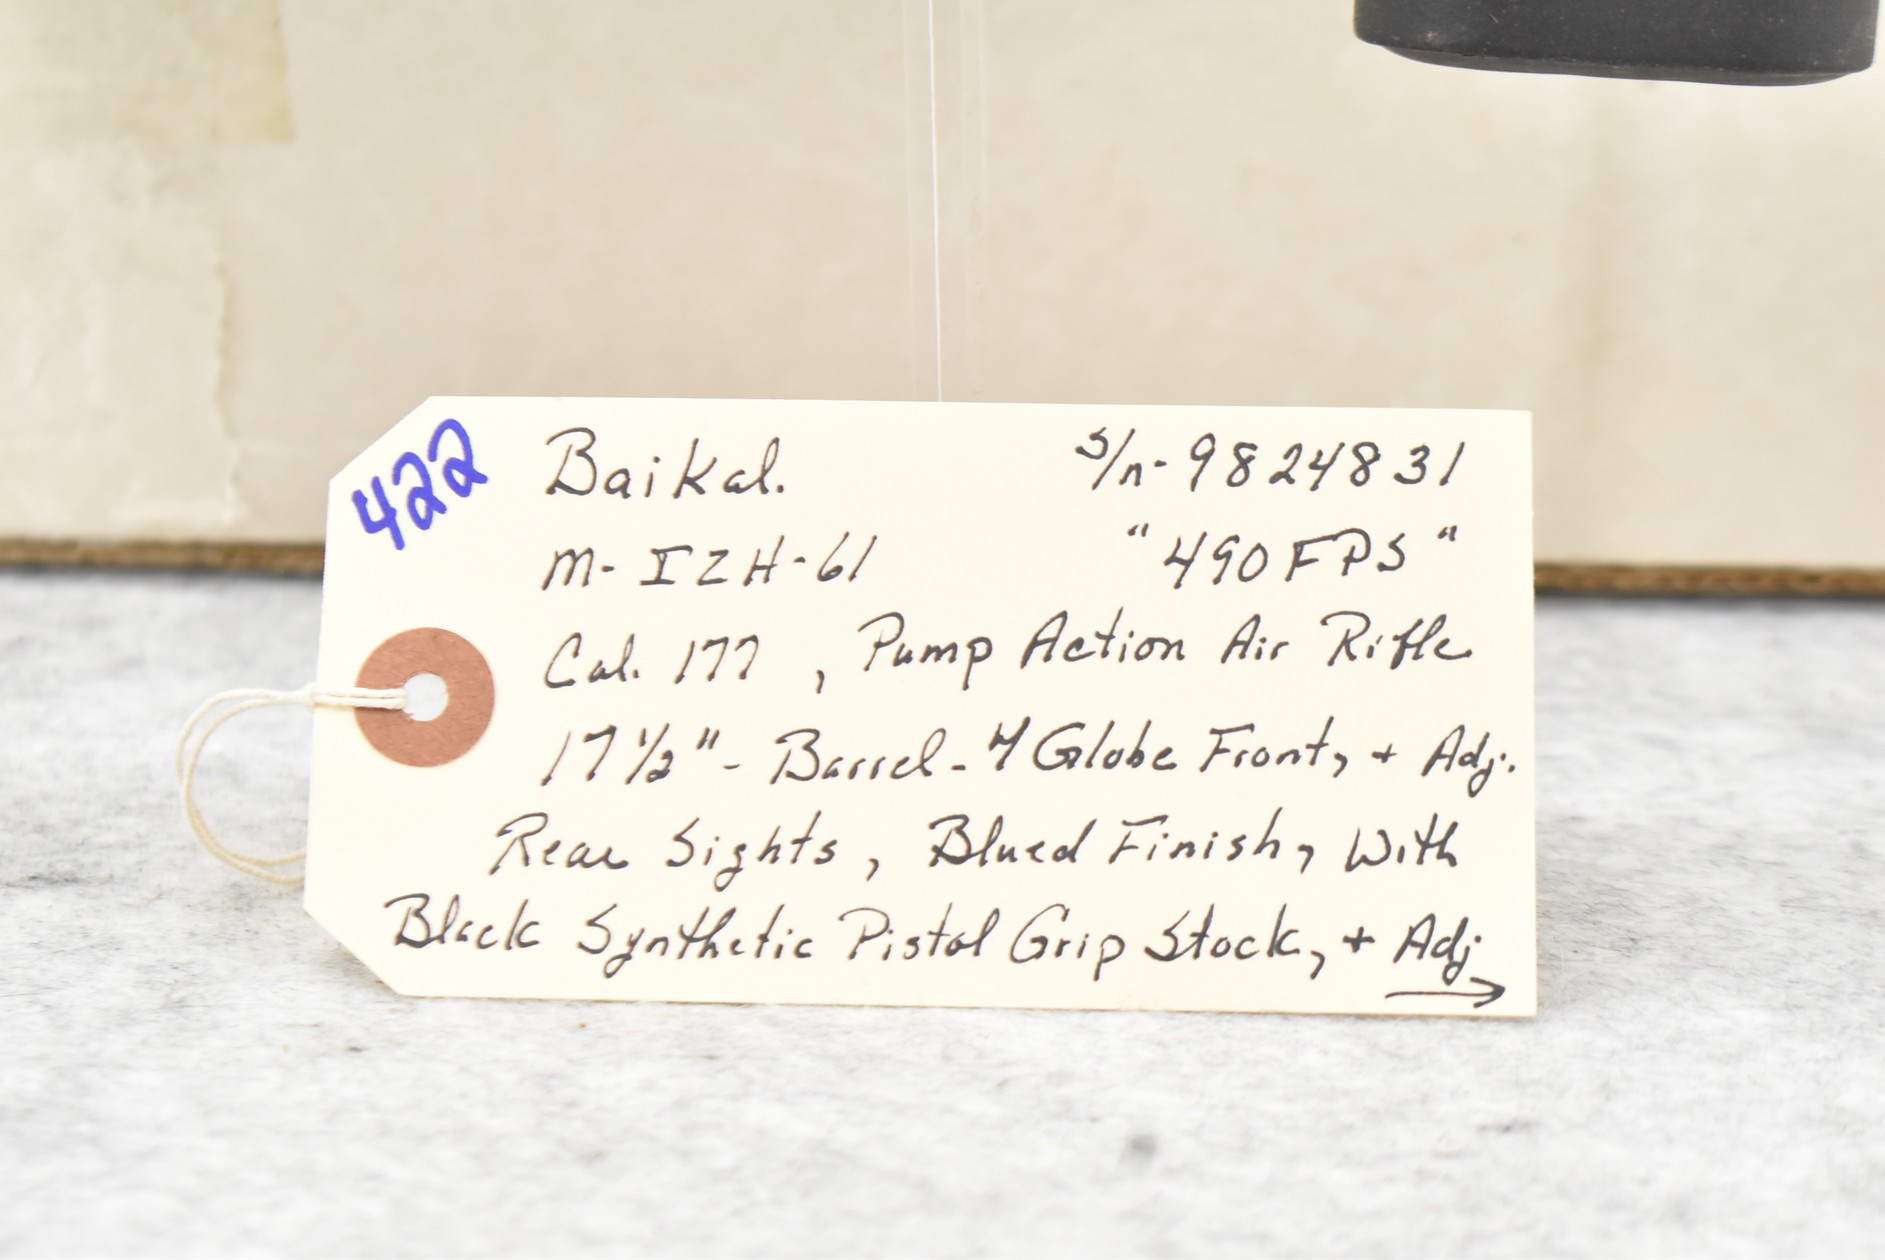 422
Baikal. S/n- 9824831
M- IZH-61 "490 FPS"
Cal. 177 , Pump Action Air Rifle
17 1/2" - Barrel - Globe Front, + Adj.
Rear Sights, Blued Finish, With
Black Synthetic Pistol Grip Stock, + Adj
→